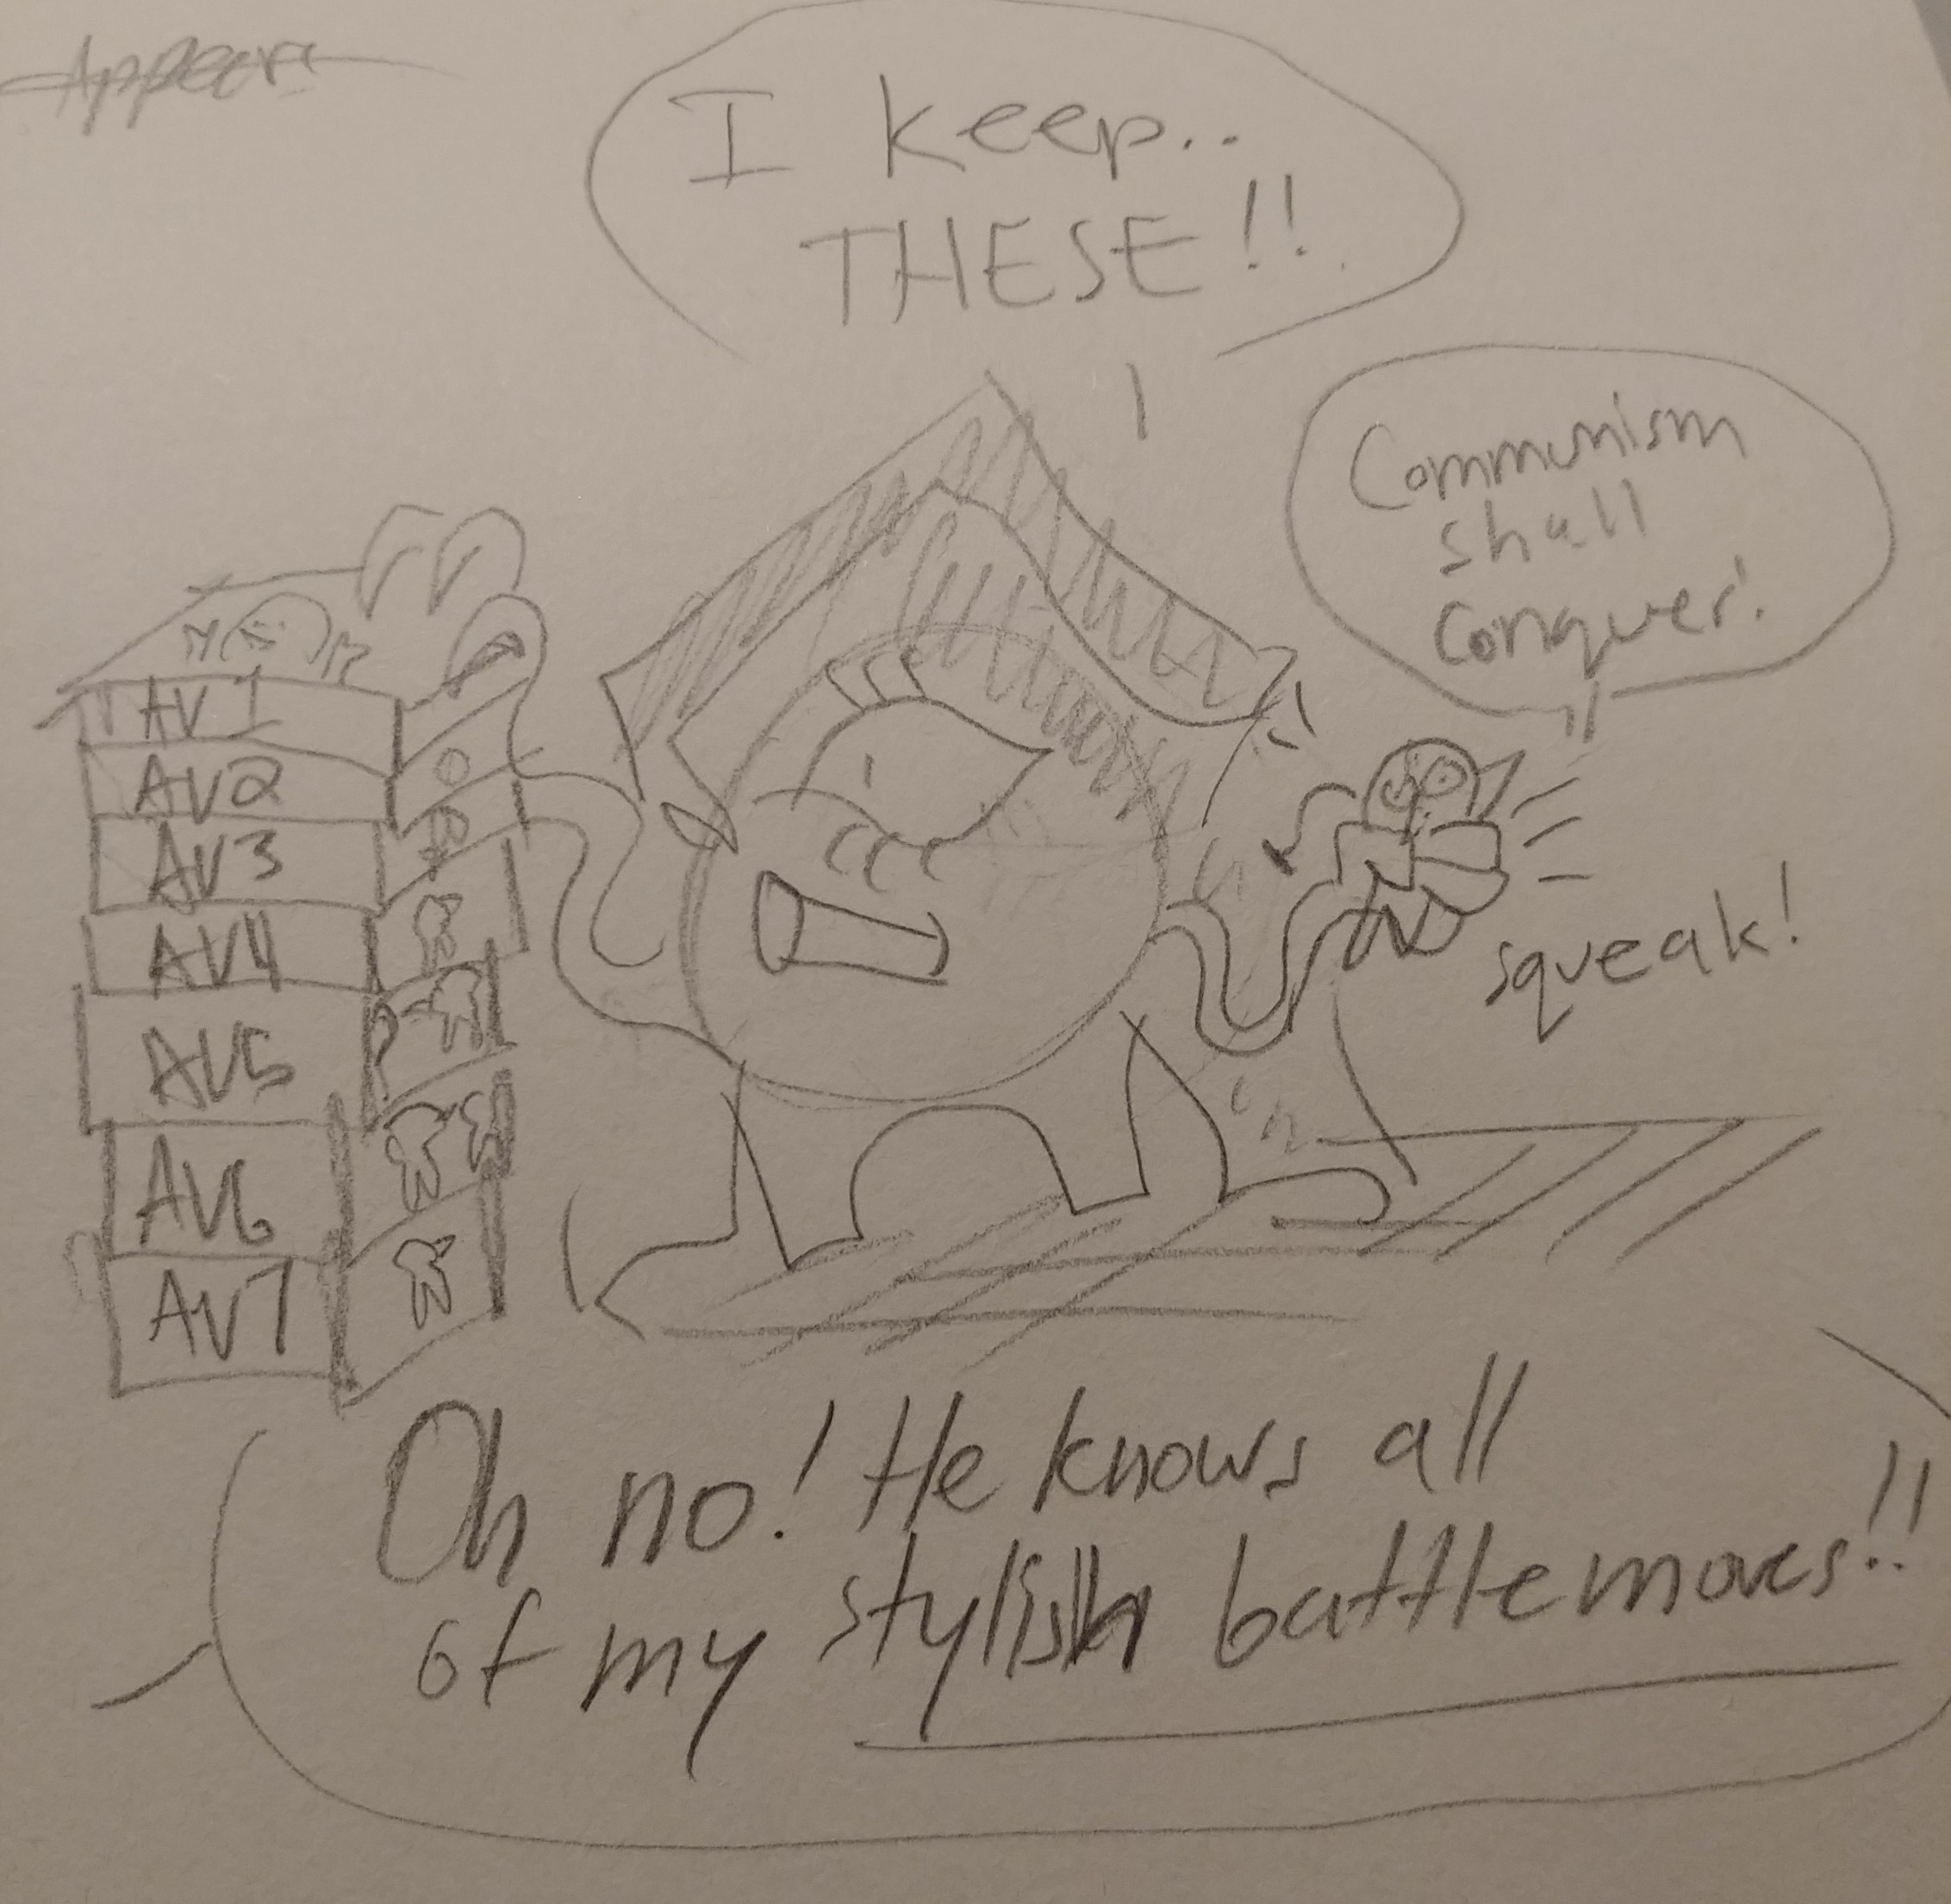 Appears
I keep..
THESE!!
Communism
shall
conquer!
AV1
AV2
AV3
AV4
AV5
AV6
AV7
squeak!
Oh no! He knows all
of my stylish battle moves!!